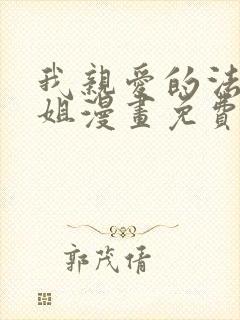 我親愛的法
姐漫畫免費
郭茂倩